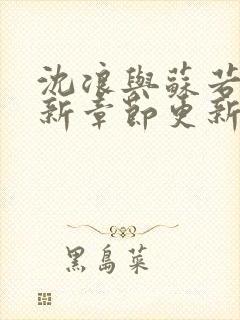 沈浪與蘇若
新章節更新
黑島菜